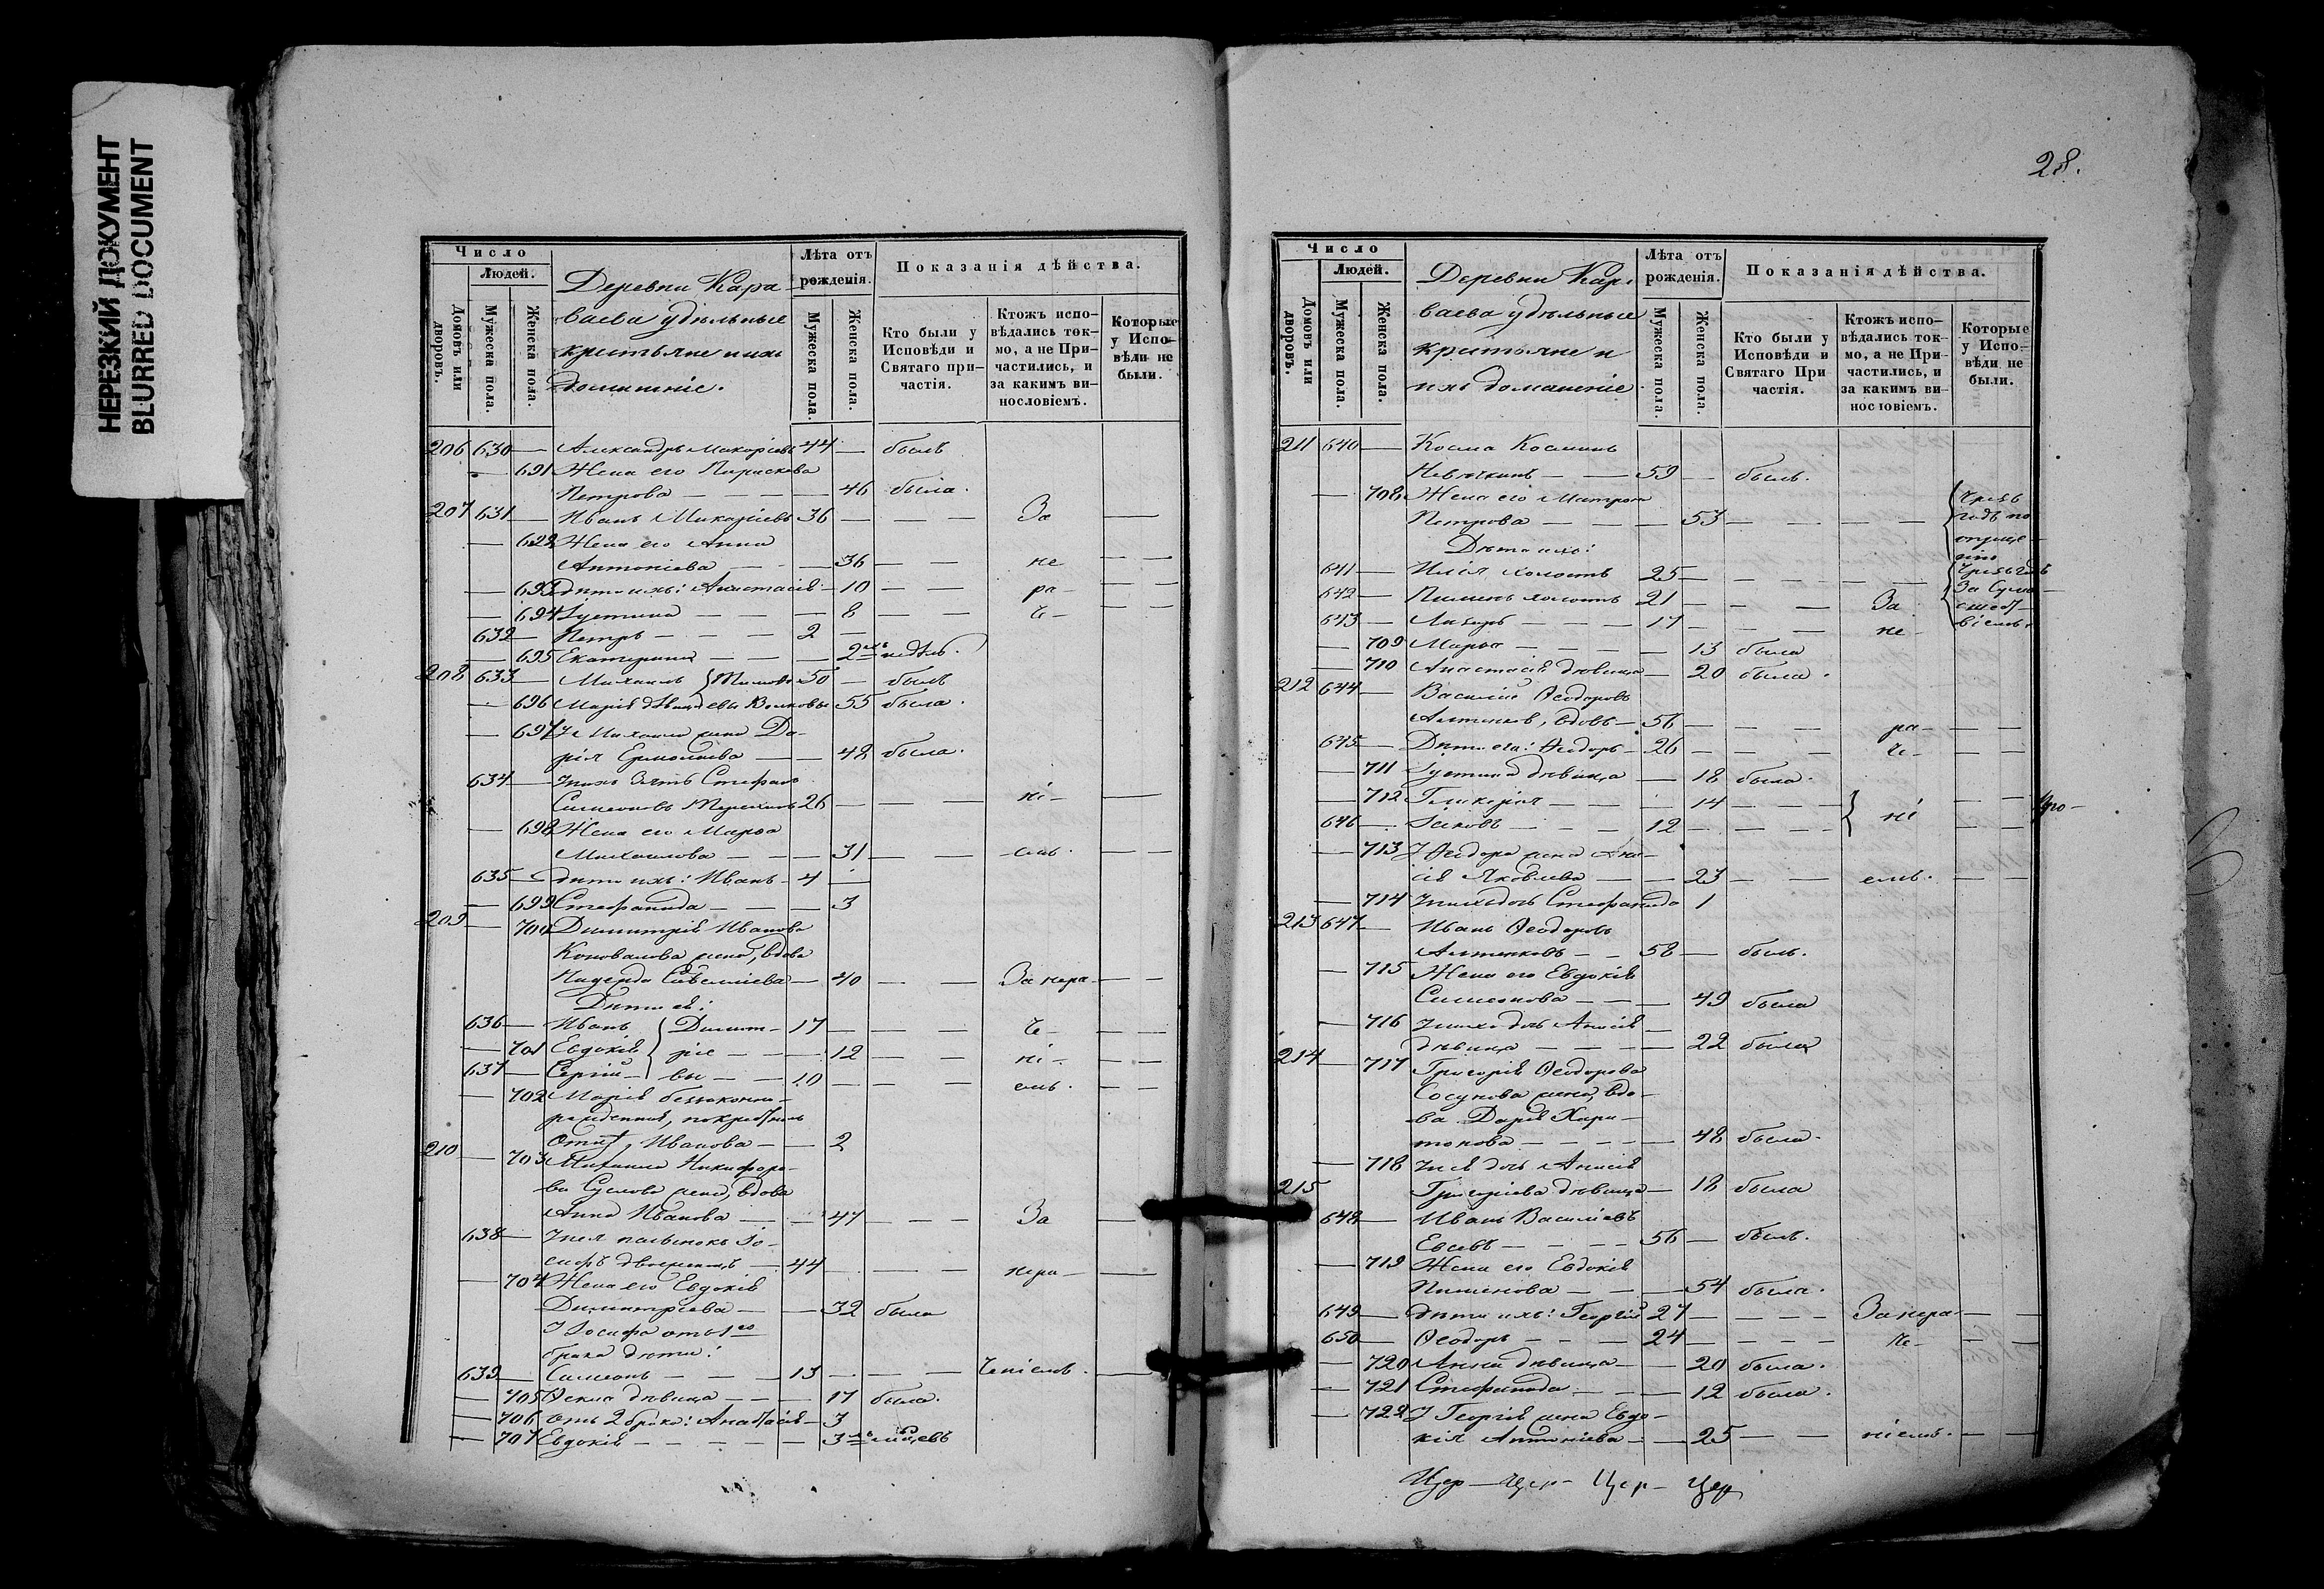 НЕРЕЗКИЙ ДОКУМЕНТ
BLURRED DOCUMENT
Число
Людей.
Домовъ или дворовъ.
Мужеска пола.
Женска пола.
Деревни Кара-
ваева удѣльные
крестьяне и ихъ
домашніе.
Лѣта отъ рожденія.
Мужеска пола.
Женска пола.
Показанія дѣйства.
Кто были у Исповѣди и Святаго при-частія.
Ктожъ испо-вѣдались ток-мо, а не При-частились, и за какимъ ви-нословіемъ.
Которые у Испо-вѣди не были.
206 630 — Александръ Макаріевъ 44 — былъ
— 691 Жена его Параскева
Петрова — — — — 46 была.
207 631 — Иванъ Макаріевъ 36 — — — За —
— 692 Жена его Анна
Антоніева — — — 36 — — не — —
— 693 Дѣти ихъ: Анастасія — 10 — — ра- — —
— 694 Іустина — — — 8 — — че- — —
632 — Петръ — — — 2 —
— 695 Екатерина — — — 2хъ недѣль.
208 633 — Михаилъ 50 — былъ
— 696 Марія дѣвица Волковы 55 была.
— 697 У Михаила жена Да-
рія Ермолаева — — 48 была.
634 — У нихъ зять Стефанъ
Симеоновъ 26 — — — ні- —
— 698 Жена его Марѳа
Михаилова — — — 31 — — -емъ. — —
635 — Дѣти ихъ: Иванъ — 4 —
— 699 Стефанида — — — 3
209 — 700 Димитрія Иванова
Коновалова жена, вдова
Надежда Савельиева — 40 — — За нера- — —
Дѣти ея:
636 — Иванъ Димит- 17 — — — че- — —
— 701 Евдокія ріе- — — 12 — — ні- — —
637 — Сергій — вы — — 10 — — — емъ. — —
— 702 Марія беззаконно-
рожденная, по крестному
Отцу, Иванова — — 2
210 — 703 Михаила Никифоро-
ва Суслова жена, вдова
Анна Иванова — — 47 — — — За —
638 — У нея пасынокъ Іо-
сифъ двоеженецъ — 44 — — — нера- —
— 704 Жена его Евдокія
Димитріева — — 32 была
У Іосифа отъ 1го
брака дѣти:
639 — Симеонъ — — — 13 — — — — ченіемъ. —
— 705 Ѳекла дѣвица — — — 17 была.
— 706 Отъ 2 брака: Анастасія — 3
— 707 Евдокія — — — — — 3хъ мѣсяцевъ
28.
Число
Людей.
Домовъ или дворовъ.
Мужеска пола.
Женска пола.
Деревни Кара-
ваева удѣльные
крестьяне и
ихъ домашніе.
Лѣта отъ рожденія.
Мужеска пола.
Женска пола.
Показанія дѣйства.
Кто были у Исповѣди и Святаго При частія.
Ктожъ испо-вѣдались ток-мо, а не При-частились, и за какимъ ви-нословіемъ.
Которые у Испо-вѣди не были.
211 640 — Косма Косминъ
— — 59 — былъ.
— 708 Жена его Матрона
Петрова — — — — 53 — — — — — Чрезъ годъ по опуще-нію
Дѣти ихъ:
641 — Илія холостъ 25 — — — — — —
642 — Пименъ холостъ 21 — — — За
643 — Лазарь — — — 17 — — — не-
— 709 Марѳа — — — — — 13 была
— 710 Анастасія дѣвица — 20 была.
212 644 — Василій Ѳеодоровъ
вдовъ — 56 — — — ра- — —
645 — Дѣти его: Ѳеодоръ — 26 — — — че- — —
— 711 Іустина дѣвица — 18 была.
— 712 Гликерія — — — 14 — — — ні — —
646 — Іаковъ — — — 12 — — — — — —
— 713 У Ѳеодора жена Ани-
сія Яковлева — — 23 — — емъ. — —
— 714 У нихъ дочь Стефанида 1
213 647 — Иванъ Ѳеодоровъ
— — 58 — былъ.
— 715 Жена его Евдокія
Симеонова — — — 49 была
— 716 У нихъ дочь Анисія
дѣвица — — — — 22 была
214 — 717 Григорія Ѳеодорова
Сосунова жена, вдо-
ва Дарія Хари-
тонова — — — — 48 была.
— 718 У нея дочь Анисія
Григоріева дѣвица — 18 была
215
648 — Иванъ Василіевъ
Евсевъ — — — — 56 — былъ.
— 719 Жена его Евдокія
Пименова — — — 54 была.
649 — Дѣти ихъ: Георгій 27 — — — — За нера- — —
650 — Ѳеодоръ — — — 24 — — — — че- — —
— 720 Анна дѣвица — — 20 была.
— 721 Стефанида — — — 12 была.
— 722 У Георгія жена Евдо-
кія Антоніева — — 25 — — ніемъ. — —